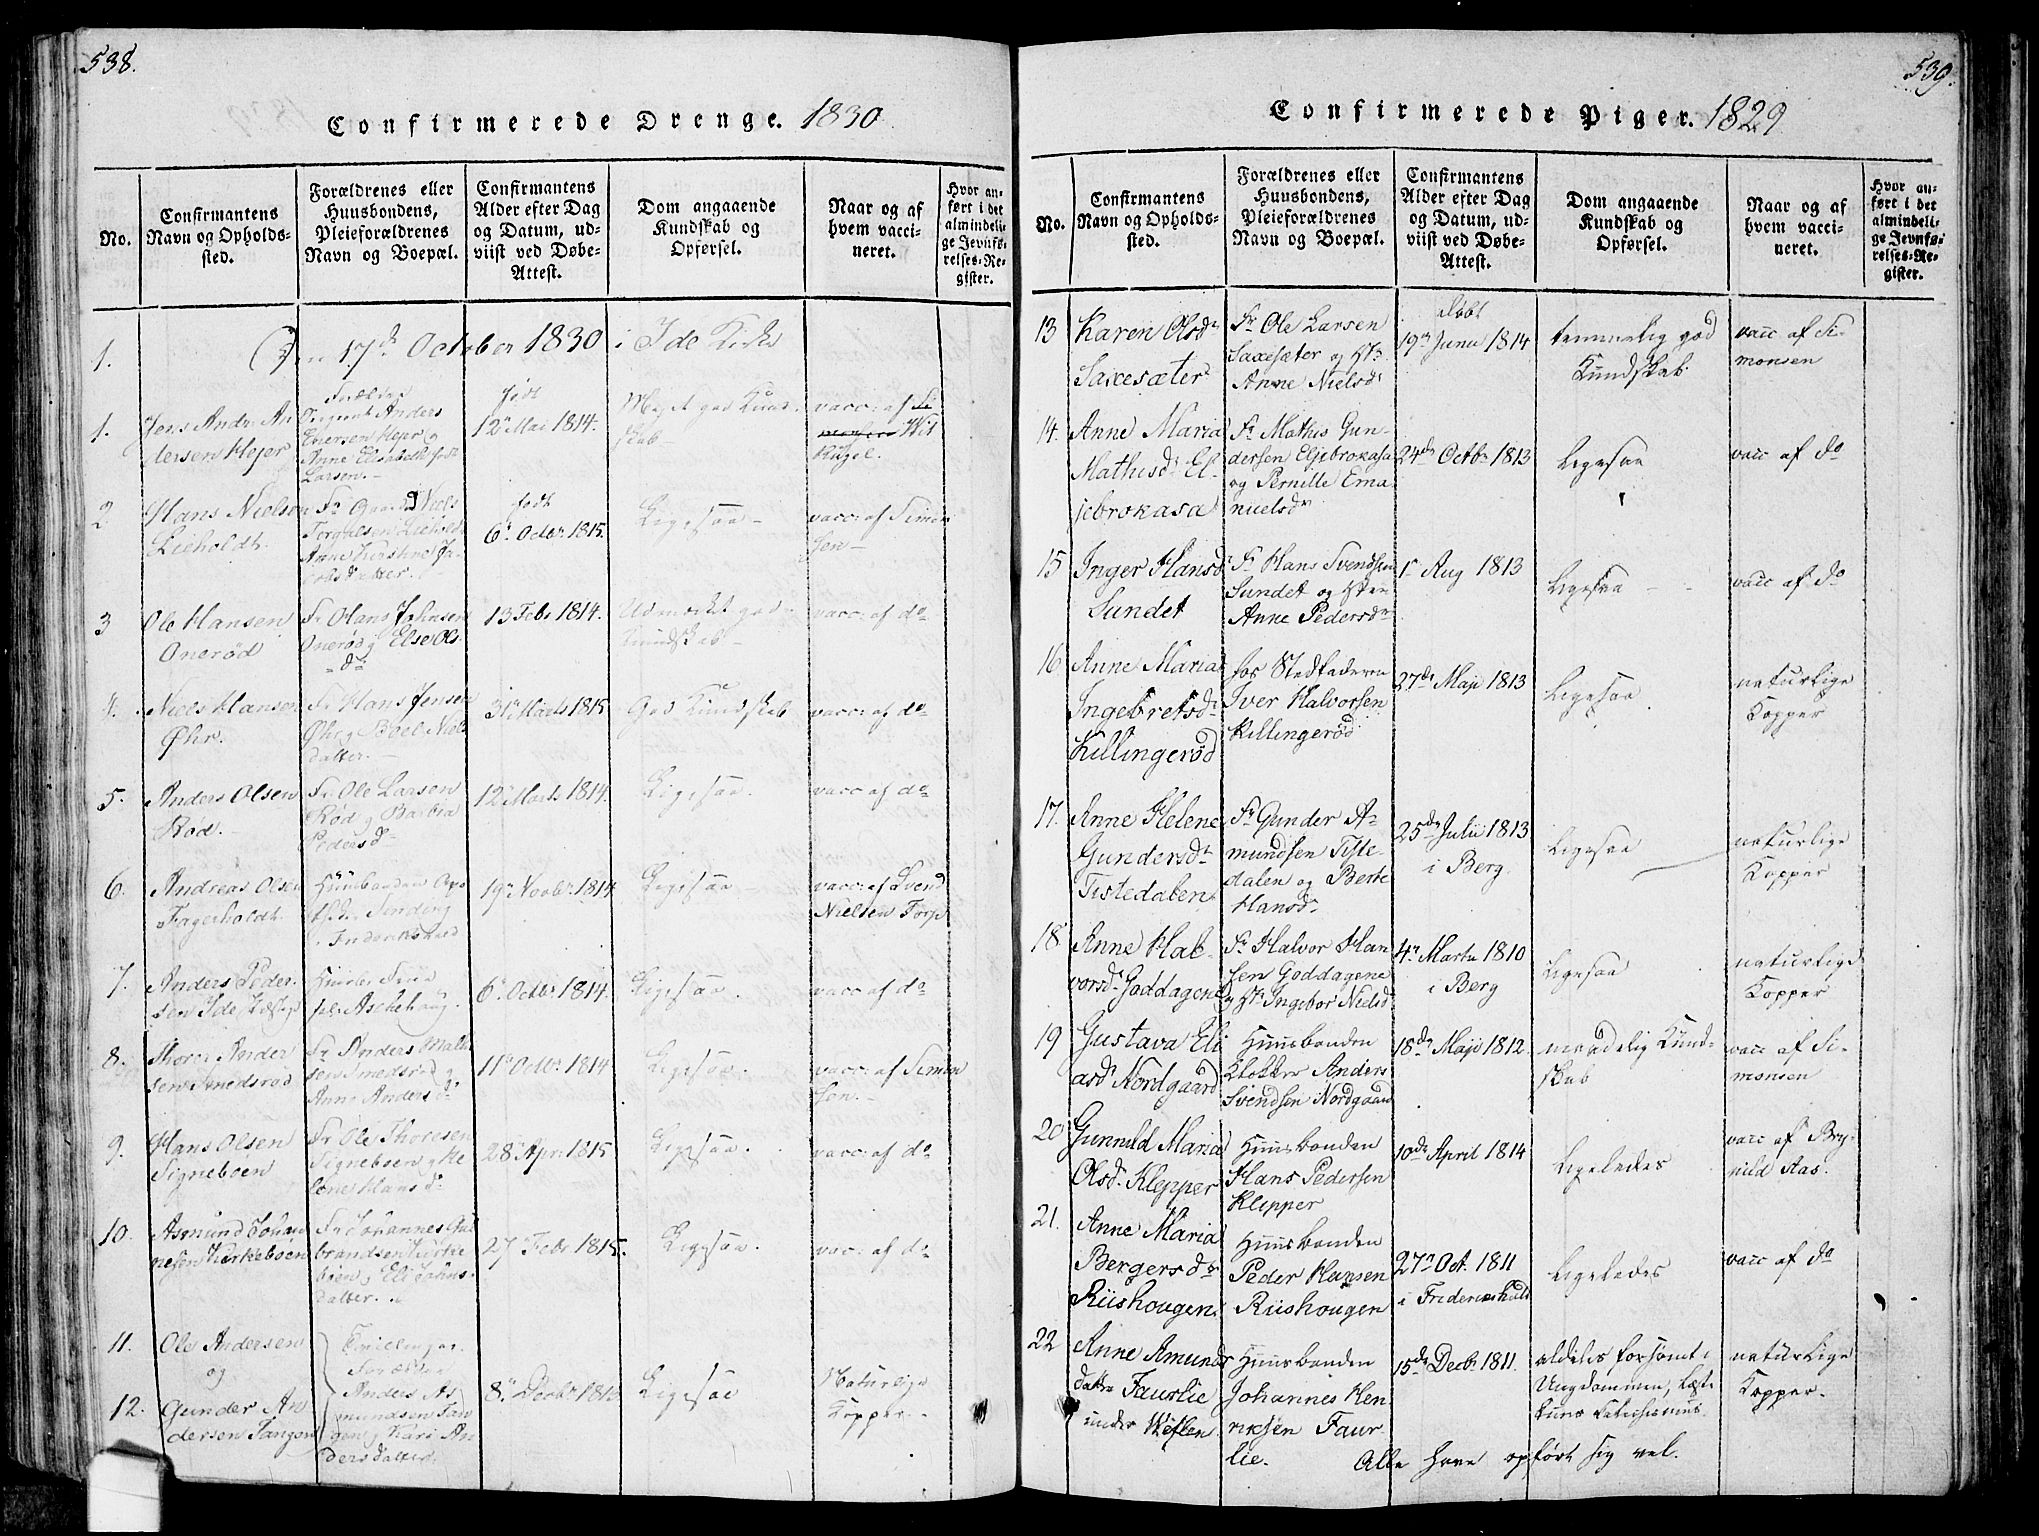 538.
Confirmerede Drenge. 1830
No.
Confirmantens
Navn og Opholds-
sted.
Forældrenes eller
Huusbondens,
Pleieforældrenes
Navn og Boepæl.
Confirmantens
Alder efter Dag
og Datum, ud-
viist ved Døbe-
Attest.
Dom angaaende
Kundskab og
Opførsel.
Naar og af
hvem vacci-
neret.
Hvor an-
ført i det
almindeli-
ge Jevnfø-
relses-Re-
gister.
1.
Den 17de October 1830 i Ide Kirke
1.
Jens Andr. An
dersen Hejer
Forældre
Anders
Enersen Hejer og
Anne Elisabeth fød
Larsen.
født
12te Mai 1814.
Meget god Kund-
skab
vacc: af
Wit
Kugel.
2
Hans Nielsen
Lieholdt.
Fr. Gaard Niels
Torgalsen Liehold
Anne Kirstine Ja-
cobsdatter.
født
6te Octbr 1815.
Ligesaa
vacc: af Simon
sen
3
Ole Hansen
Onerød
Fr Hans Johnsen
Onerød og Else Ols
dr
13 Febr 1814.
Udmærket god
Kundskab
vacc: af do
4.
Niels Hansen
Øhr.
Fr Hans Jensen
Øhr og Boel Niels
datter.
31te Marts 1815
God Kundskab
vacc: af do
5.
Anders Olsen
Rød.
Fr. Ole Larsen
Rød og Barbra
Pedersdr
12te Marts 1814.
Ligesaa.
vacc af do
6.
Andreas Olsen
Fagerholdt.
Huusbonden Apo
theker Sinding
i Frederikshald
19de Novbr. 1814
Ligesaa
vacc: af Svend
Nielsen Torp
7.
Anders Peder
sen Ide
Askehoug.
6te Octbr 1814.
Ligesaa.
vacc: af do
8.
Thore Ander
sen Smedsrød
Fr Anders
sen Smedsrød og
Anne Andersdr
11te Octbr 1814
Ligesaa.
vacc: af Simon
sen
9.
Hans Olsen
Signeboen
Fr Ole Thoresen
Signeboen og He
lene Hansdr
28de Apr: 1815
Ligesaa.
vacc: af do
10.
Asmund Johan
nesen Kirkeboen
Fr Johannes Gul
brandsen Kirke
boen og Eli Johns-
datter.
27de Febr 1815.
Ligesaa.
vac: af do
11.
Ole Andersen
og
12.
Gunder An
dersen Tangen
Tvillinger
Forældre
Anders As
mundsen Tan
gen og Kari An
dersdatter.
8de Decbr 1813
Ligesaa
Naturlige
Kopper.
539.
Confirmerede Piger. 1829
No.
Confirmantens
Navn og Opholds-
sted.
Forældrenes eller
Huusbondens,
Pleieforældrenes
Navn og Boepæl.
Confirmantens
Alder efter Dag
og Datum, ud-
viist ved Døbe-
Attest.
Dom angaaende
Kundskab og
Opførsel.
Naar og af
hvem vacci-
neret.
Hvor an-
ført i det
almindeli-
ge Jevnfø-
relses-Re-
gister.
13
Karen Olsdr
Saxesæter
Fr Ole Larsen
Saxesæter og Hs
Anne Nielsdr
døbt
19de Junii 1814
temmelig god
Kundskab
vacc af Si-
monsen
14.
Anne Maria
Mathisdr El-
jebrokasa
Fr Mathis Gun-
dersen Eljebrokasa
og Pernille Ema
nuelsdr
24de Octbr 1813
Ligesaa
vacc af do
15
Inger Hansdr
Sundet
Fr Hans Svendsen
Sundet og
Anne Pedersdr
1ste Aug 1813
Ligesaa
vacc af do
16
Anne Maria
Ingebretsdr
Killingerød
hos Stedfaderen
Iver Halvorsen
Killingerød
27de Maji 1813
Ligesaa
naturlige
Kopper
17.
Anne Helene
Gundersdr
Tistedalen
Fr Gunder A-
mundsen Tiste-
dalen og Berte
Hansdr
25de Julii 1813
i Berg
Ligesaa
naturlige
Kopper
18
Anne Hal-
vorsdr Goddagene
Fr Halvor Han
sen Goddagene
og Hs Ingebor Nielsdr
4de Martii 1810
i Berg
Ligesaa
naturlige
Kopper
19
Gustava Eli
asdr Nordgaard
Huusbonden
Klokker Anders
Svendsen Nordgaard
18de Maji 1812.
maadelig Kund-
skab
vacc af Si-
monsen
20
Gunnild Maria
Olsdr Klepper
Huusbonden
Hans Pedersen
Klepper
10de April 1814
Ligeledes
vacc af Bry-
nild Aas.
21.
Anne Maria
Bergersdr
Riishougen
Huusbonden
Peder Hansen
Riishougen
27de Oct. 1811
i Frederikshald
Ligeledes
vacc af do
22
Anne Amunds
datter Faurlie
under Weflen
Huusbonden
Johannes Hen
riksen Faur
lie.
15de Decbr 1811.
aldeles forsømt i
Ungdommen, læste
kuns Catechismus.
naturlige
Kopper.
Alle have opført sig vel.